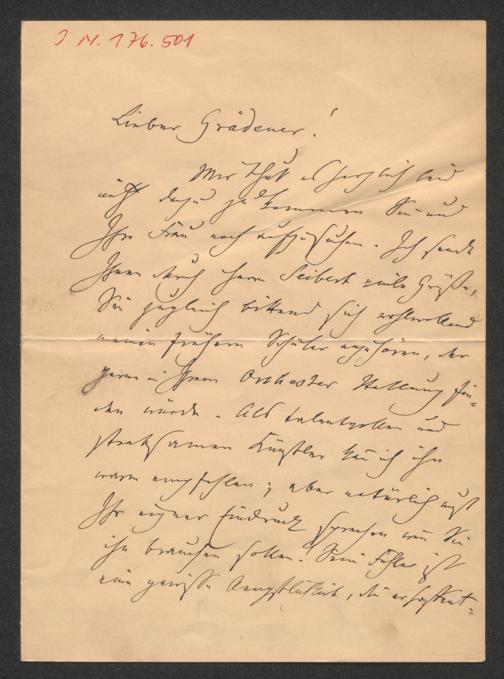 J. N. 176.501
Lieber Grädener!
Mir thut es herzlich leid
nicht dazu zu kommen Sie und
Ihre Frau noch aufzusuchen. Ich sende
Ihnen durch Herrn Seibert viele Grüße,
Sie zugleich bittend sich wohlwollend
meinen frühern Schüler anzuhören, der
gerne in Ihrem Orchester Stellung fin-
den würde. Als talentvollen und
strebsamen Künstler kann ich ihn
warm empfehlen; aber natürlich muß
Ihr eigner Eindruck sprechen wie Sie
ihn brauchen sollen. Sein Fehler ist
eine gewisse Aengstlichkeit, die